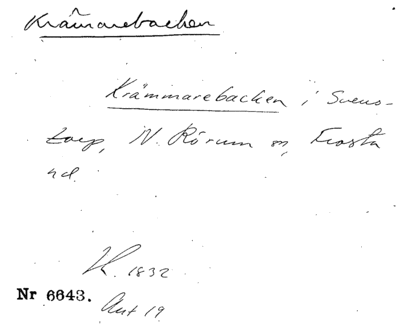 Krämarebacken
Krämmarebacken i Svens-
torp, N. Rörum sn, Frosta
hd.
K. 1832
Nr 6643.
Ant 19